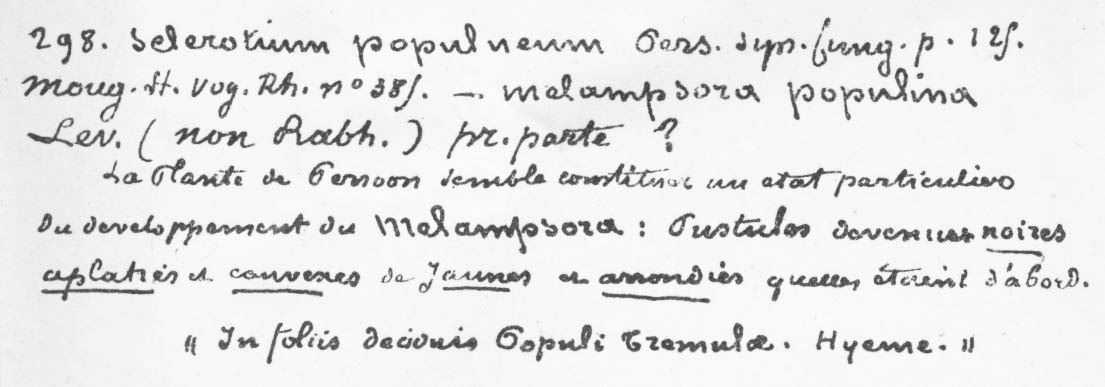 298. Sclerotium populneum Pers. Syn. fung. p. 125.
Moug. St. Vog. Rh. nº 385. — Melampsora populina
Lev. (non Rabh.) pr. parte ?
La Plante de Persoon semble constituer un etat particulier
du developpement du Melampsora : Pustules devenues noires
aplaties et convexes de Jaunes et arrondies quelles étaient d'abord.
" In foliis deciduis Populi Tremulæ. Hyeme. "